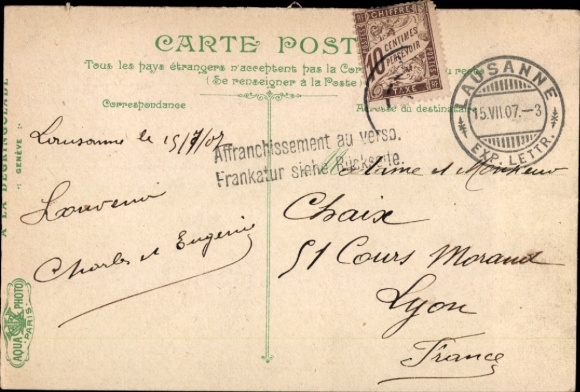 CARTE POST
Tous les pays étrangers n'acceptent pas la Cor au recto
(Se renseigner à la Poste)
Correspondance
Adresse du destinataire
CHIFFRE
10 CENTIMES
A PERCEVOIR
POSTES
TAXE
LAUSANNE
15.VII.07.-3
EXP. LETTR.
Affranchissement au verso.
Frankatur siehe Rückseite.
Lausanne le 15/7/07
Souvenir
Charles et Eugénie
Madame et Monsieur
Chaix
51 Cours Morand
Lyon
France
A LA DÉGRINGOLADE
GENÈVE
AQUA PHOTO
PARIS